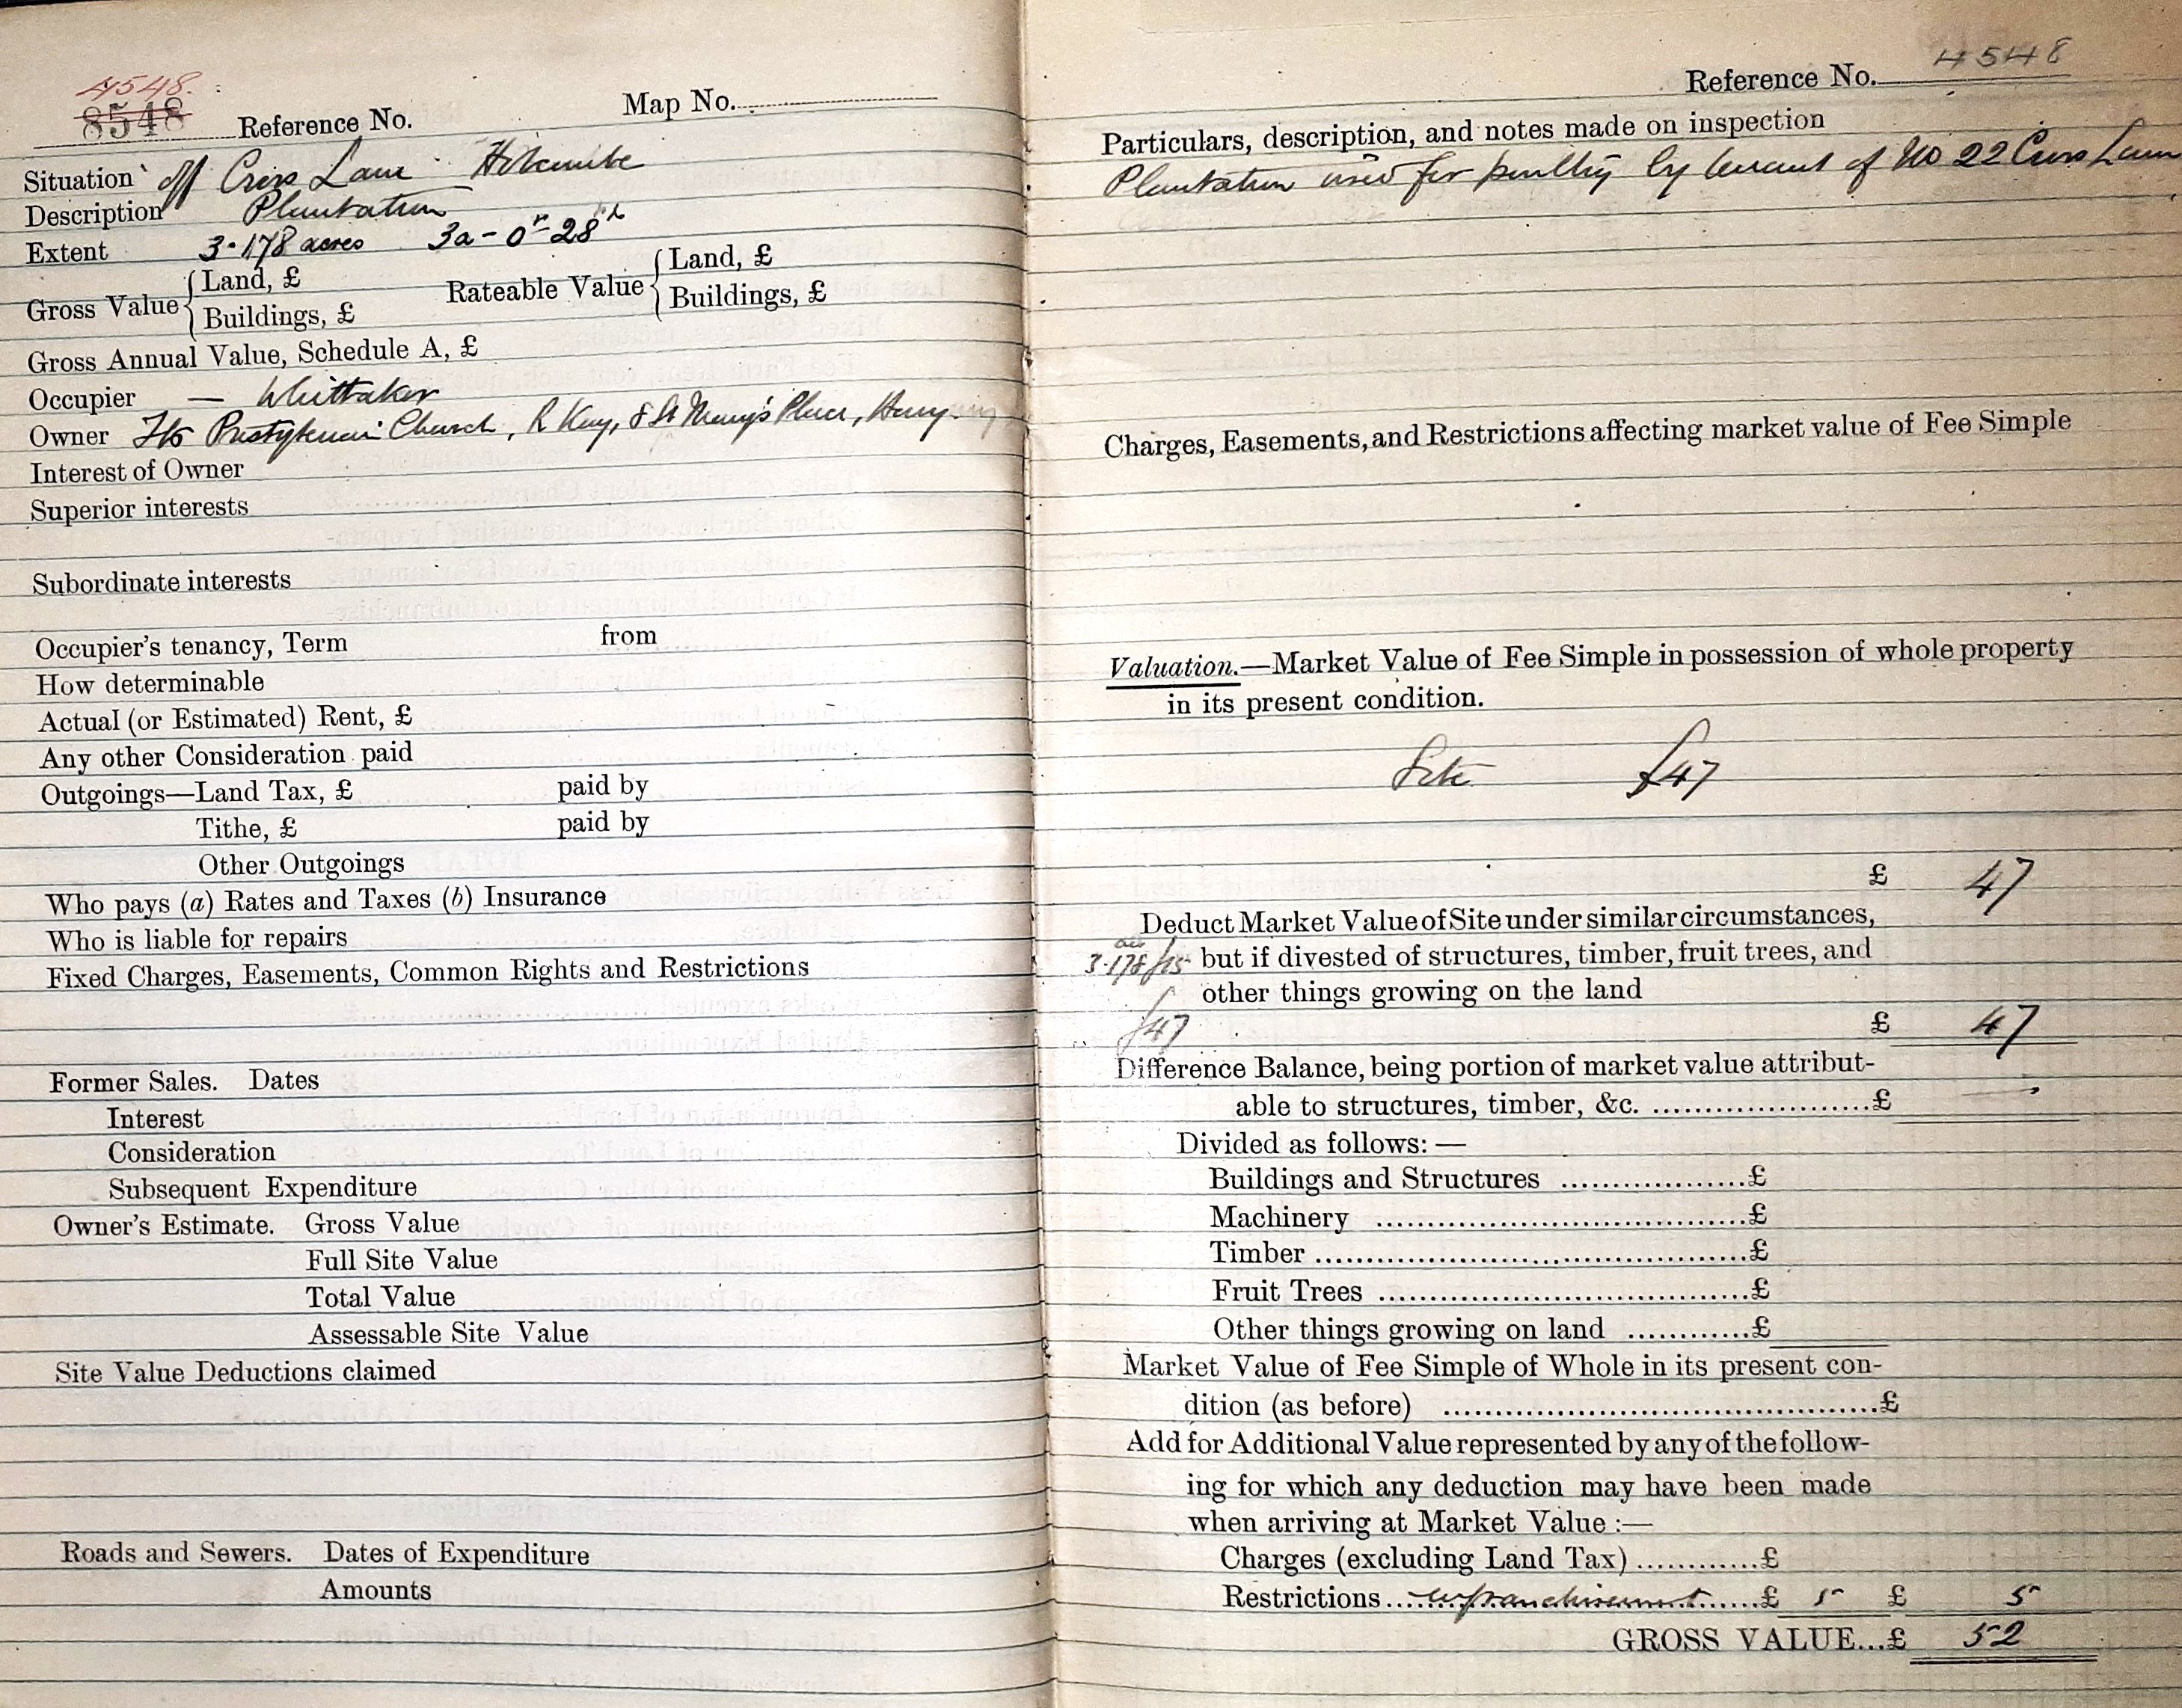 4548.
8548 Reference No. Map No.
Situation off Cross Lane Holcombe
Description Plantation
Extent 3.178 acres 3a - 0r - 28
Gross Value { Land, £
Buildings, £
Rateable Value { Land, £
Buildings, £
Gross Annual Value, Schedule A, £
Occupier — Whittaker
Owner Presbyterian Church, R Kay, 8 St Mary's Place, Bury.
Interest of Owner
Superior interests
Subordinate interests
Occupier's tenancy, Term from
How determinable
Actual (or Estimated) Rent, £
Any other Consideration paid
Outgoings—Land Tax, £ paid by
Tithe, £ paid by
Other Outgoings
Who pays (a) Rates and Taxes (b) Insurance
Who is liable for repairs
Fixed Charges, Easements, Common Rights and Restrictions
Former Sales. Dates
Interest
Consideration
Subsequent Expenditure
Owner's Estimate. Gross Value
Full Site Value
Total Value
Assessable Site Value
Site Value Deductions claimed
Roads and Sewers. Dates of Expenditure
Amounts
Reference No. 4548
Particulars, description, and notes made on inspection
Plantation used for poultry by tenant of No 22 Cross Lane
Charges, Easements, and Restrictions affecting market value of Fee Simple
Valuation.—Market Value of Fee Simple in possession of whole property
in its present condition.
Site £47
£ 47
Deduct Market Value of Site under similar circumstances,
3.178 £15 but if divested of structures, timber, fruit trees, and
other things growing on the land
£47 £ 47
Difference Balance, being portion of market value attribut-
able to structures, timber, &c. ......................£ —
Divided as follows: —
Buildings and Structures ...................£
Machinery ......................................£
Timber ............................................£
Fruit Trees ......................................£
Other things growing on land ............£
Market Value of Fee Simple of Whole in its present con-
dition (as before) .............................................£
Add for Additional Value represented by any of the follow-
ing for which any deduction may have been made
when arriving at Market Value :—
Charges (excluding Land Tax) .............£
Restrictions ... enfranchisement ......£ 5 £ 5
GROSS VALUE...£ 52